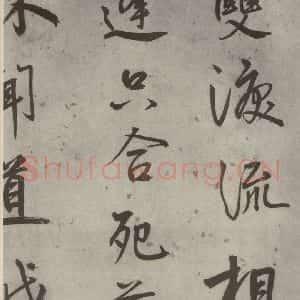 雙淚流相
逢只合死
聞道
Shufawang.CN